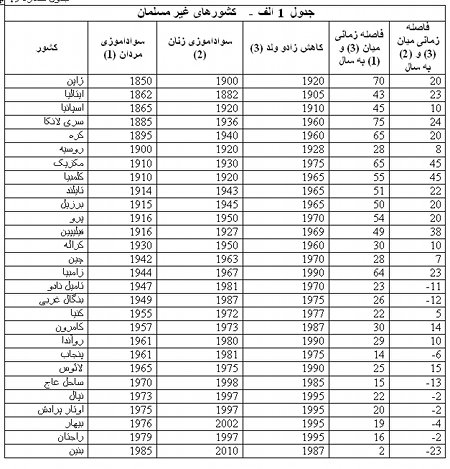 جدول 1 الف - کشورهای غیر مسلمان
کشور سوادآموزی مردان (1) سوادآموزی زنان (2) کاهش زادو ولد (3) فاصله زمانی میان (3) و (1) به سال فاصله زمانی میان (3) و (2) به سال
ژاپن 1850 1900 1920 70 20
ایتالیا 1862 1882 1905 43 23
اسپانیا 1865 1920 1910 45 10
سری لانکا 1885 1936 1960 75 24
کره 1895 1940 1960 65 20
روسیه 1900 1920 1928 28 8
مکزیک 1910 1930 1975 65 45
کلمبیا 1910 1920 1965 55 45
تایلند 1914 1943 1965 51 22
برزیل 1915 1945 1965 50 20
پرو 1916 1950 1970 54 20
فیلیپین 1916 1927 1969 49 38
کراله 1930 1950 1960 30 10
چین 1942 1963 1970 28 7
زامبیا 1944 1967 1990 64 23
تامیل نادو 1947 1981 1970 23 -11
بنگال غربی 1949 1987 1975 26 -12
کنیا 1955 1972 1977 22 5
کامرون 1957 1973 1987 30 14
رواندا 1961 1980 1990 29 10
پنجاب 1961 1981 1975 14 -6
لائوس 1965 1975 1990 25 15
ساحل عاج 1970 1998 1985 15 -13
نپال 1973 1997 1995 22 -2
اوتار پرادش 1975 1997 1995 20 -2
بیهار 1976 2002 1995 19 -4
راجتان 1979 1997 1995 16 -2
بنین 1985 2010 1987 2 -23